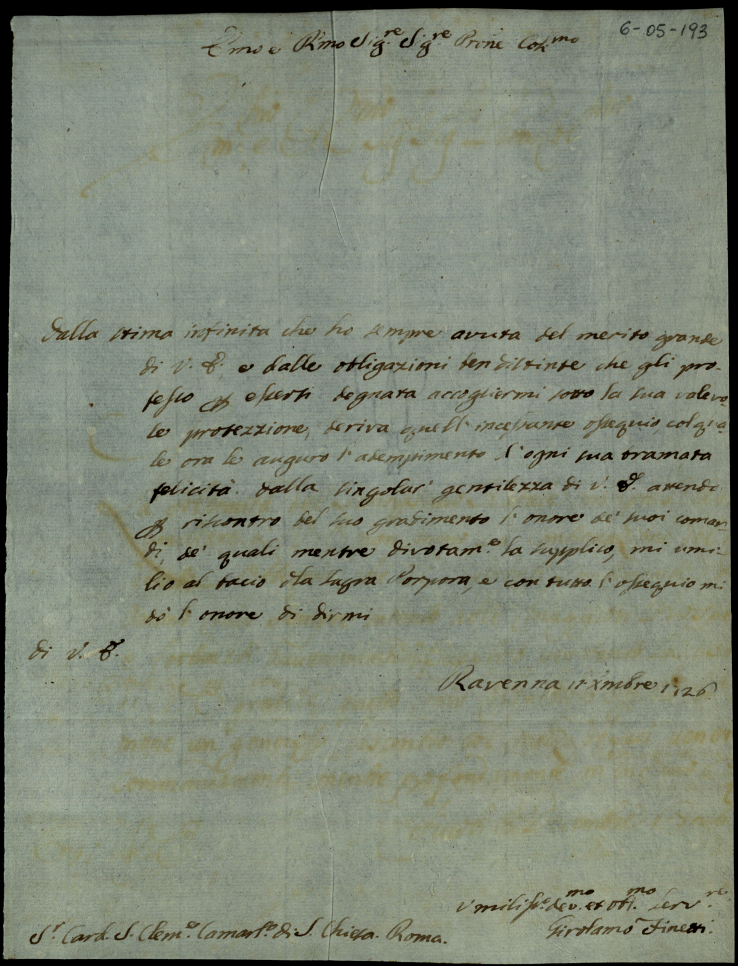 6-05-193
Emo e Rmo Sig.re Sig.re Prone Col.mo
Dalla stima infinita che ho sempre avuta del merito grande
di V. E. e dalle obligazioni ben distinte che gli pro-
fesso esersi degnata accogliermi sotto la sua valevo
le protezzione, deriva quell' incessante ossequio, col qua
le ora le auguro l' adempimento d' ogni sua bramata
felicità. Dalla singolar' gentilezza di V. E. attendo
riscontro del suo gradimento l' onore de' suoi coman
di, de' quali mentre divotam.e la supplico, mi umi-
lio al bacio della sagra Porpora, e con tutto l' ossequio mi
dò l' onore di dirmi
di V. E.
Ravenna Xmbre 1726
Umiliss.o dev.mo et obl.mo Serv.re
Girolamo Finetti
S.r Card. S. Clem.e Camarl.o di S. Chiesa. Roma.